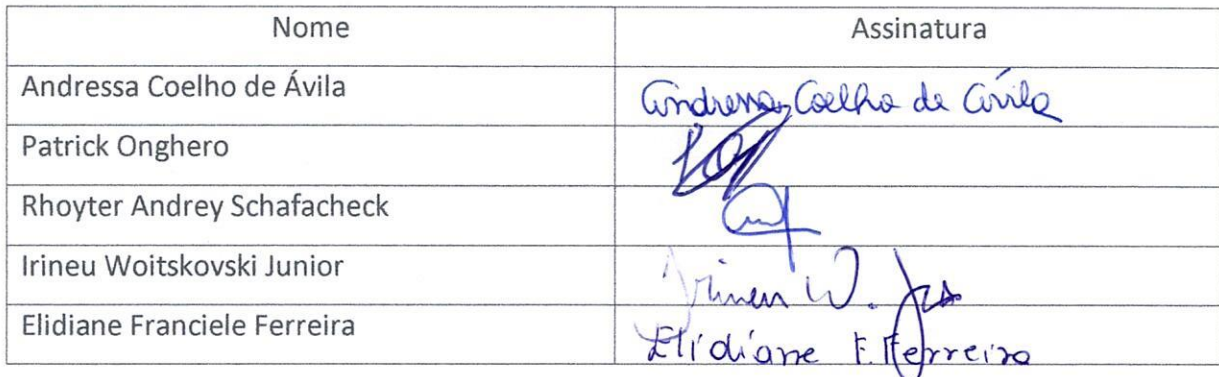 Nome Assinatura
Andressa Coelho de Ávila Andressa Coelho de Ávila
Patrick Onghero
Rhoyter Andrey Schafacheck
Irineu Woitskovski Junior Irineu W. Jr
Elidiane Franciele Ferreira Elidiane F. Ferreira